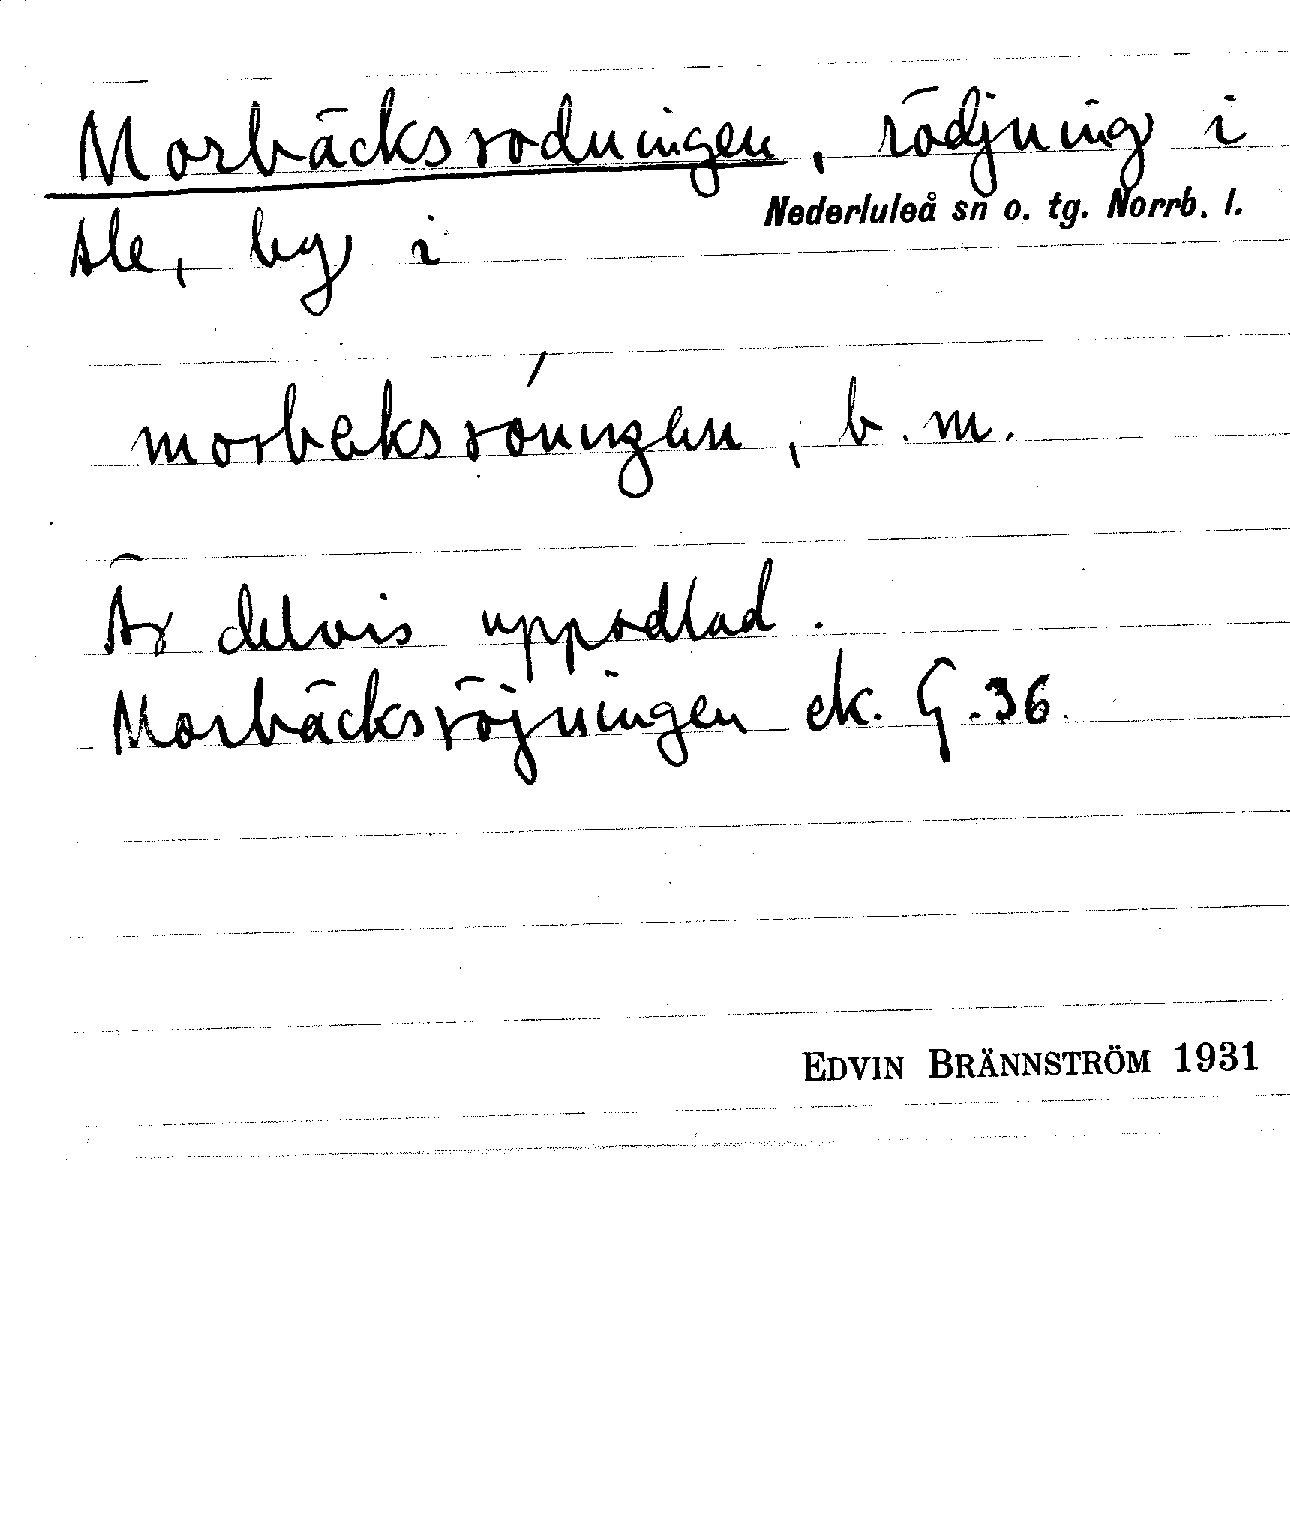 Morbäcksrodningen, rödjning i
Nederluleå sn o. tg. Norrb. l.
Ale, by i
morbeksróningen, b. m.
Är delvis uppodlad.
Morbäcksröjningen ek. G. 36
EDVIN BRÄNNSTRÖM 1931